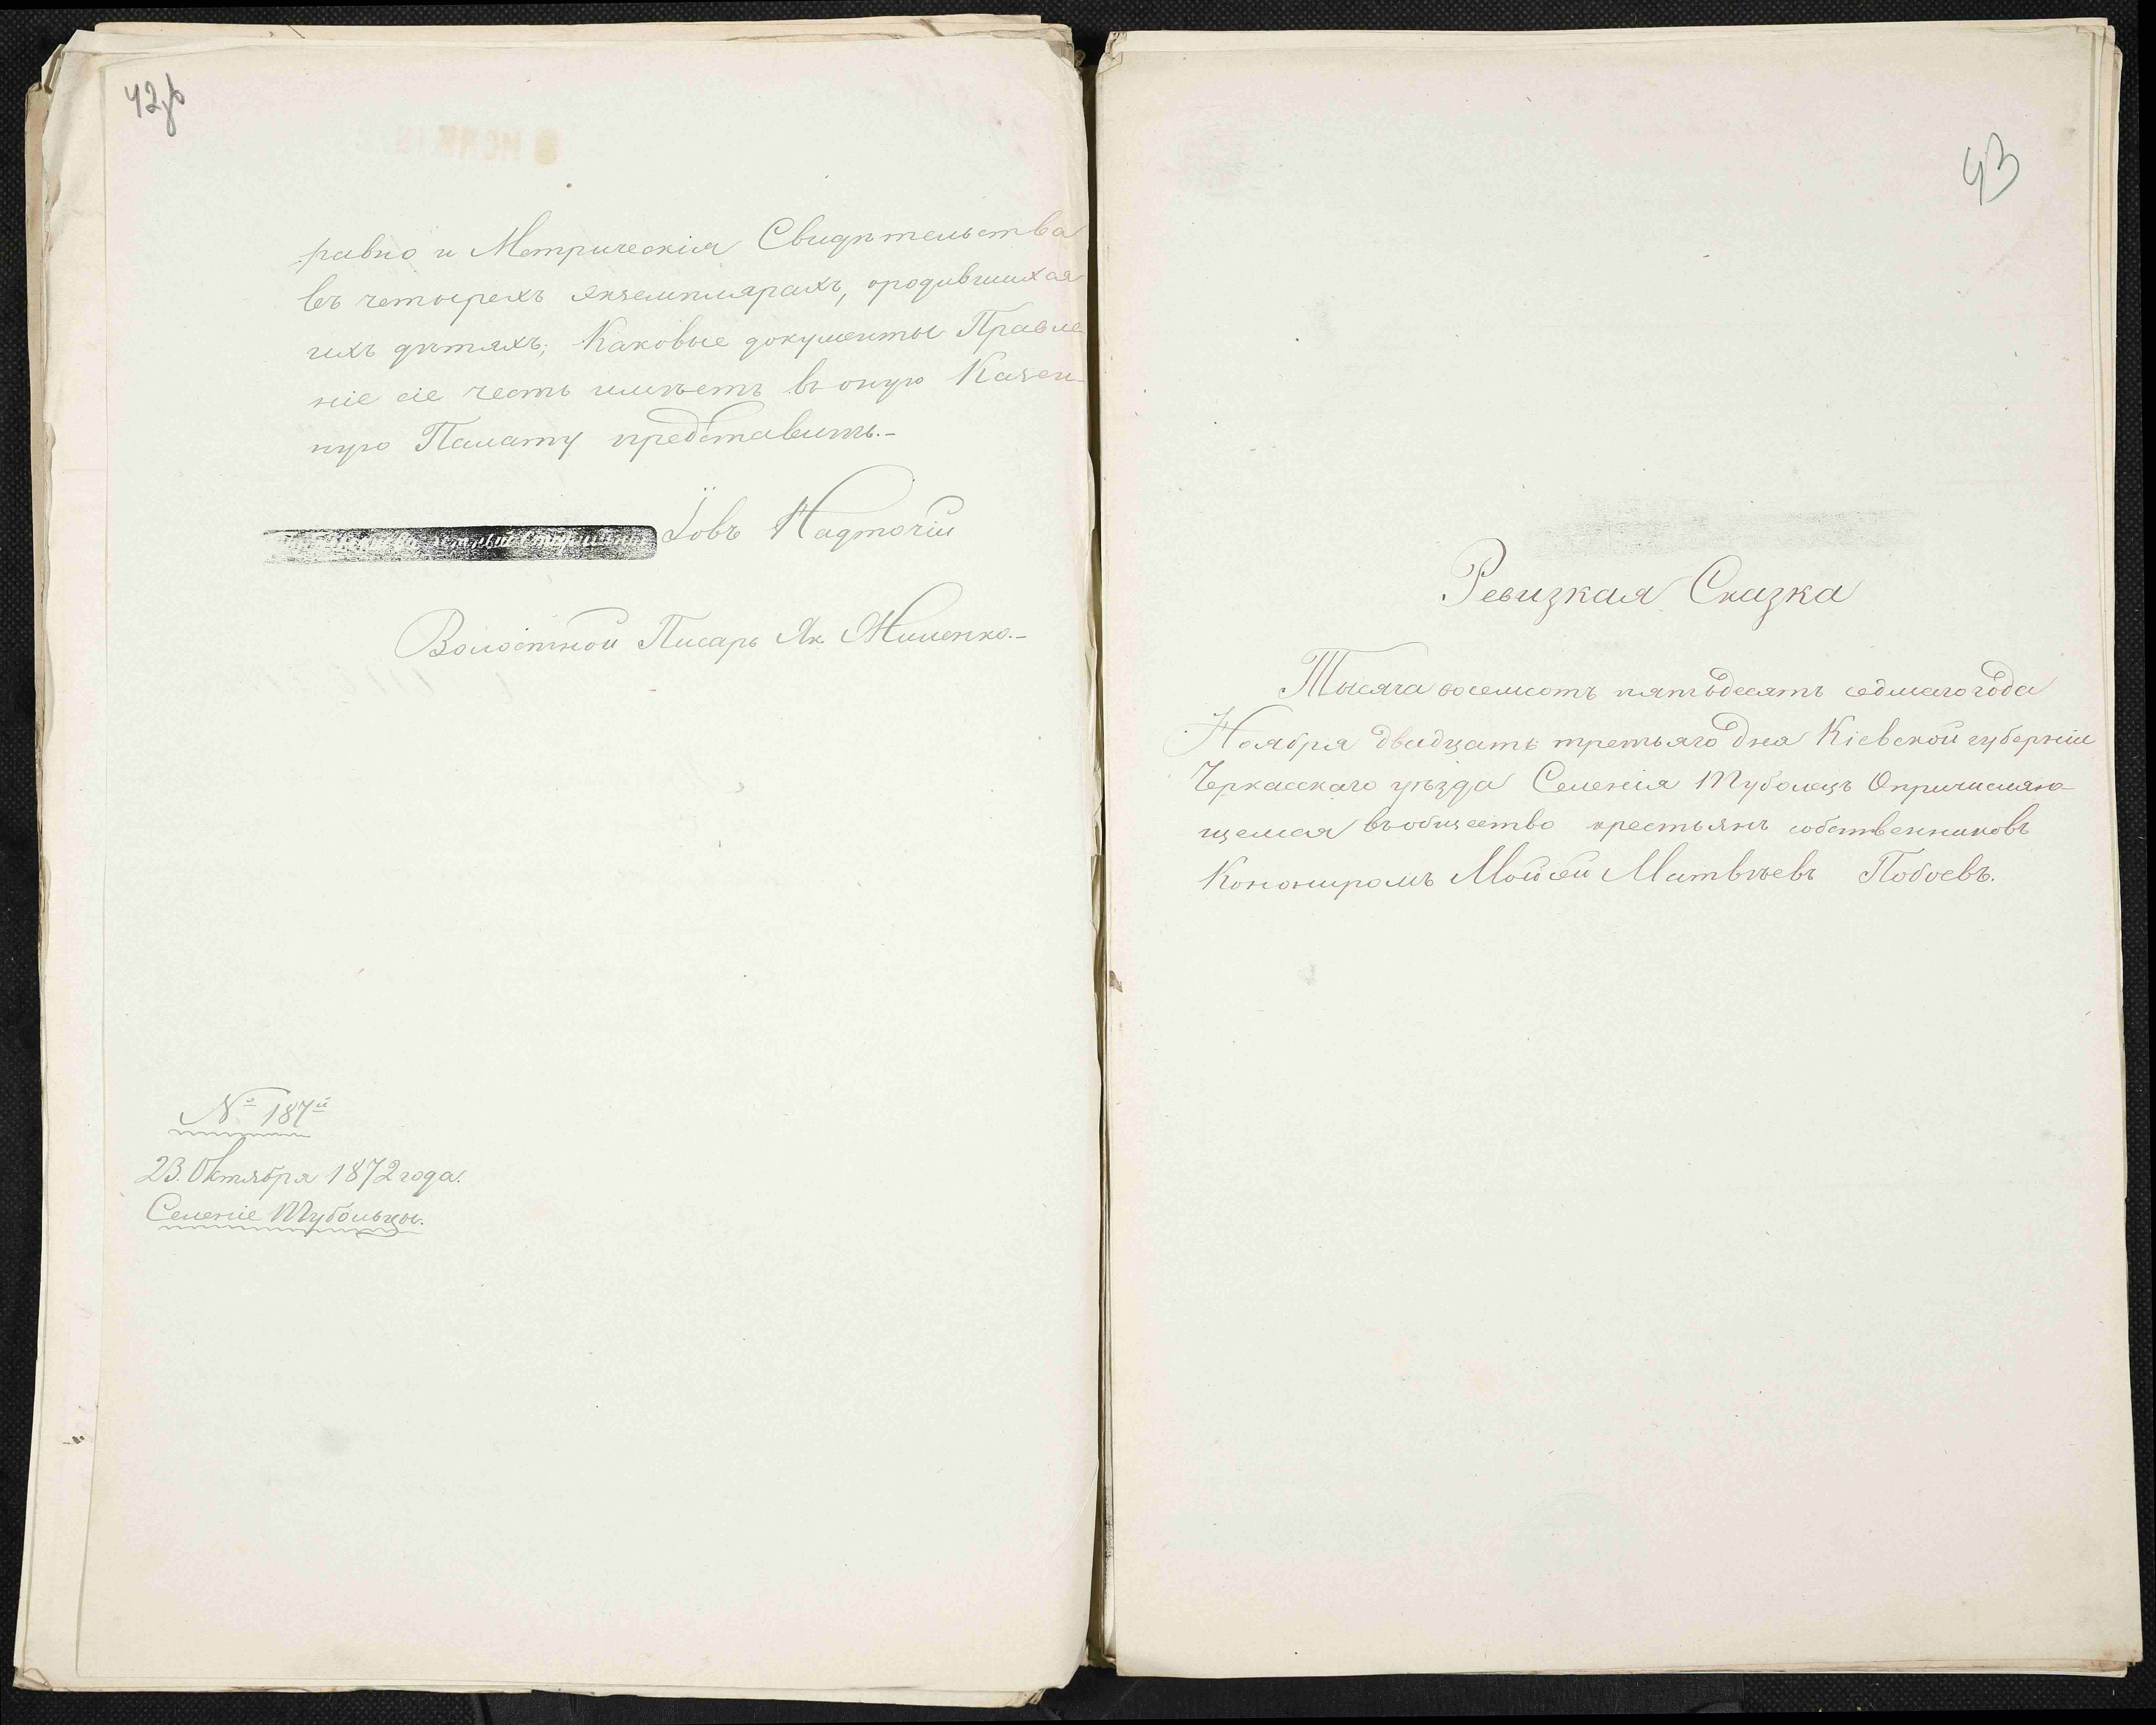 42об
равно и Метрическія Свидѣтельства
въ четырехъ экземплярахъ, ородившихся
ихъ дѣтяхъ; Каковые документы Правле
ніе сіе честь имѣетъ въ оную Казен-
ную Палату представить.-
Іовъ Надточій
Волостной Писарь Як.
№ 187й
23. Октября 1872 года.
Селеніе Тубольцы.
43
Ревизкая Сказка
Тысяча восемсотъ пятьдесятъ седмаго года
Ноября двадцать третьяго дня Кіевской губерніи
Черкасскаго уѣзда Селенія Туболецъ Опричисляю-
щемся въобщество крестьянъ собственниковъ
Канониромъ Мойсѣй Матвѣевъ Побоевъ.